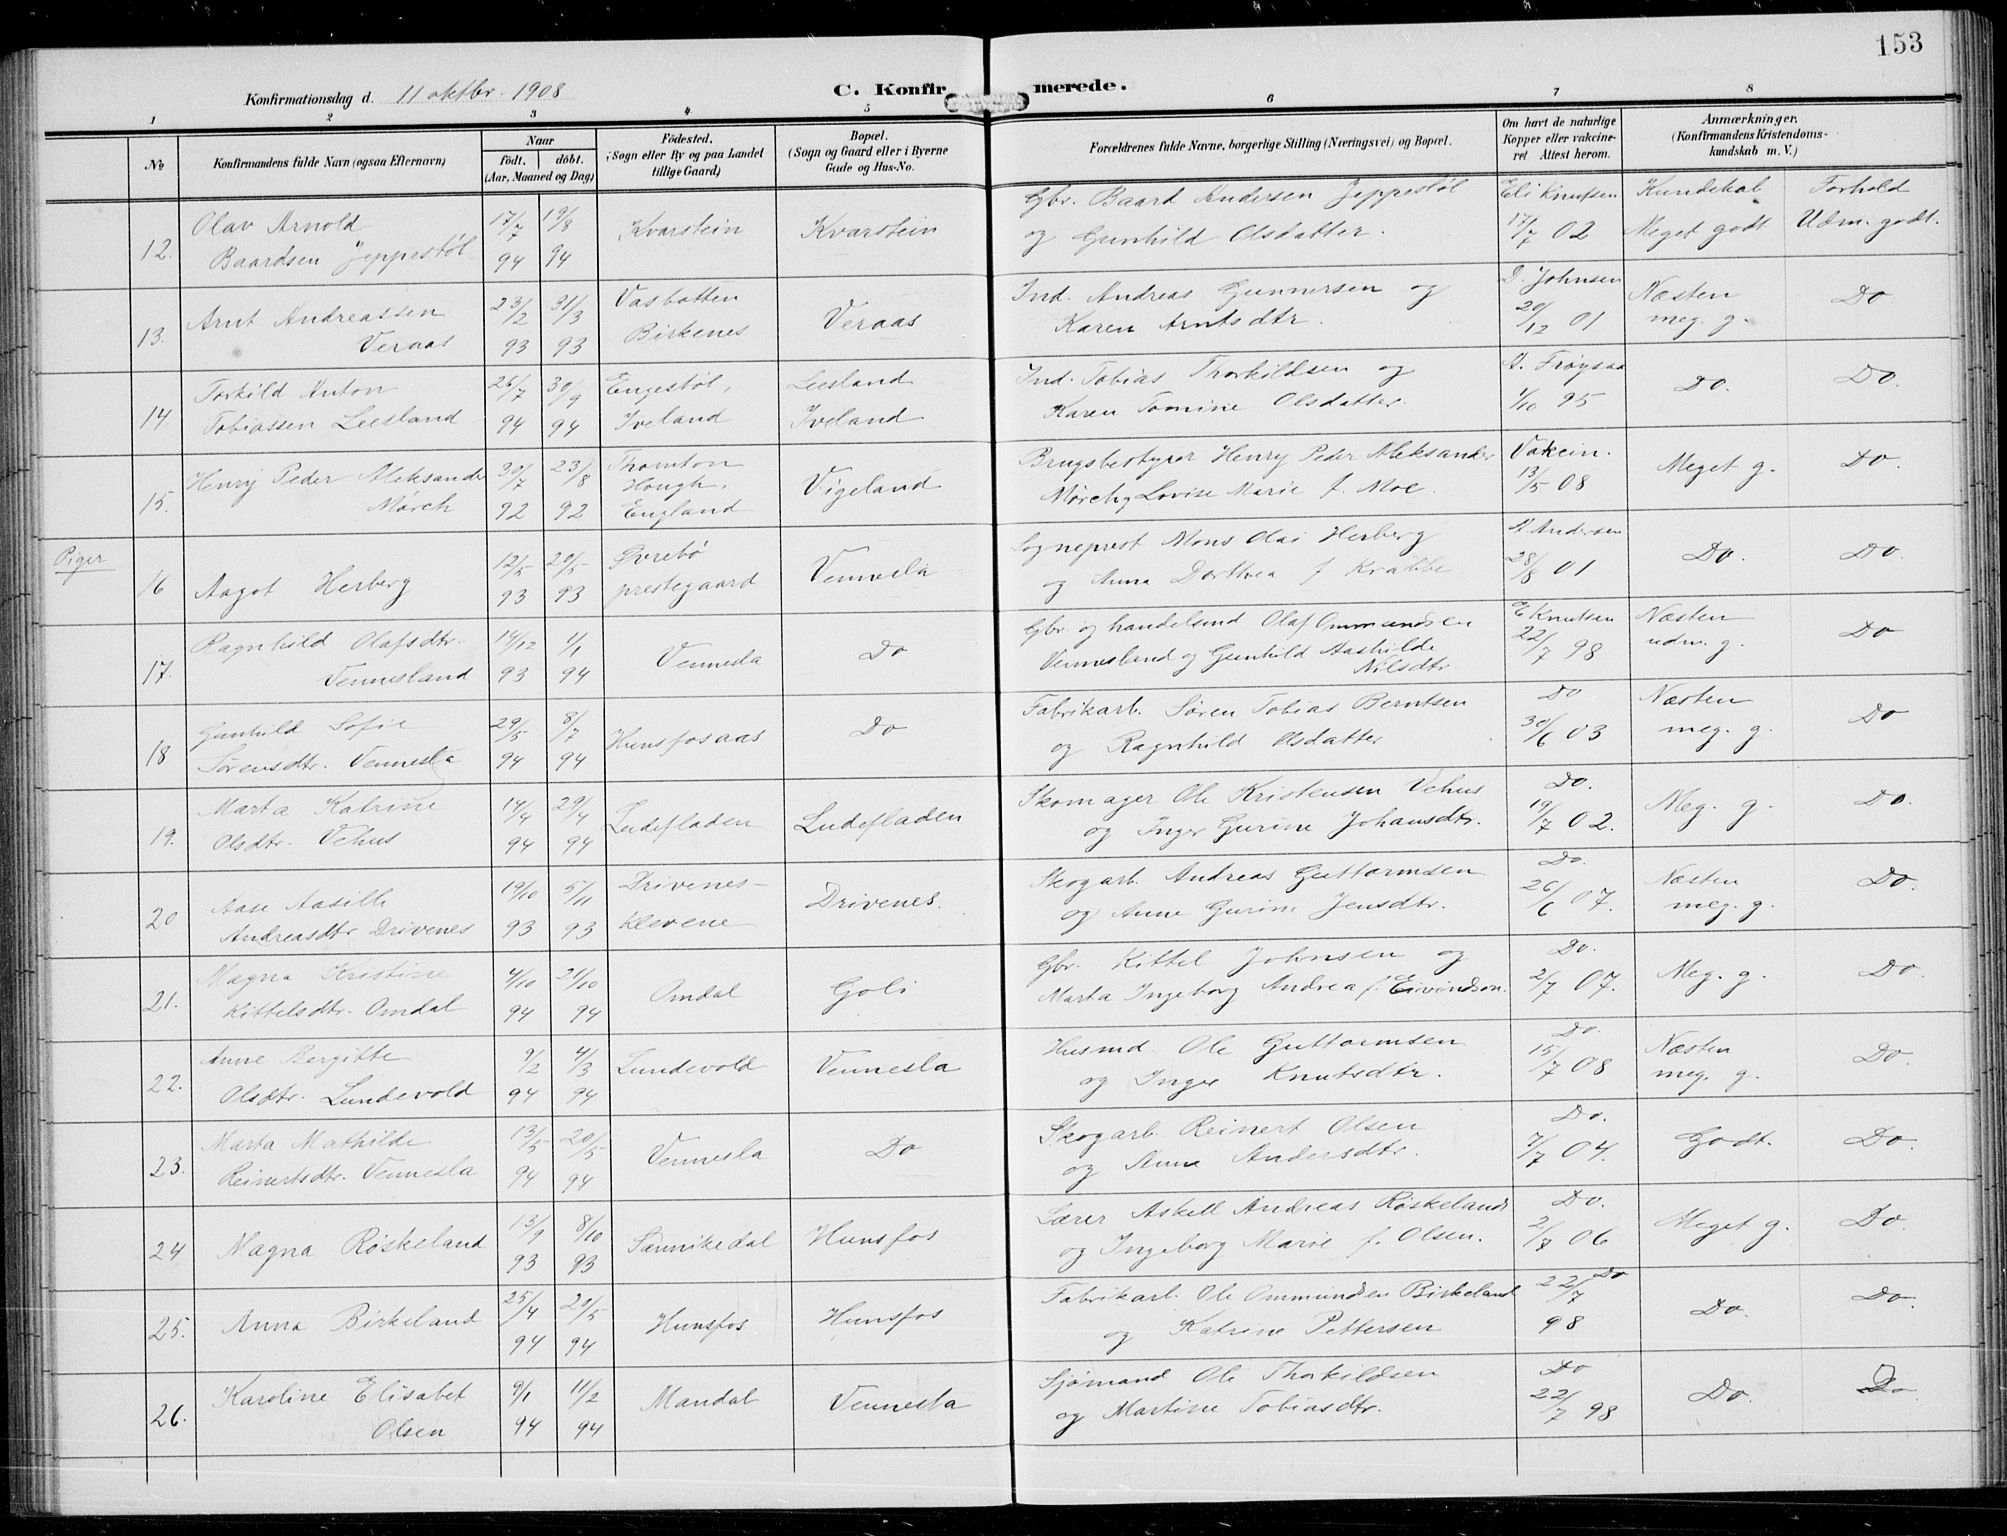 153
Konfirmationsdag d. 11 oktbr. 1908
C. Konfirmerede.
1 2 3 4 5 6 7 8
No
Konfirmandens fulde Navn (ogsaa Efternavn)
Naar
födt, döbt.
(Aar, Maaned og Dag)
Födested.
(Sogn eller By og paa Landet
tillige Gaard)
Bopæl.
(Sogn og Gaard eller i Byerne
Gade og Hus-No.
Forældrenes fulde Navne, borgerlige Stilling (Næringsvei) og Bopæl.
Om havt de naturlige
Kopper eller vakcine-
ret Attest herom.
Anmærkninger,
(Konfirmandens Kristendoms-
kundskab m. V.)
Kundskab Forhold
12. Olav Arnold 17/7 19/8 Kvarstein Kvarstein Gbr. Baard Andersen Jeppestøl Eli Knutsen
Baardsen Jeppestøl 94 94 og Gunhild Olsdatter. 17/7 02 Meget godt Udm. godt.
13. Arnt Andreassen 23/2 31/3 Vasbotten Veraas Ind. Andreas Gunnersen og D. Johnsen Næsten Do
Veraas 93 93 Birkenes Karen Arntsdtr. 20/12 01 meg. g.
14. Torkild Anton 26/7 30/9 Engestøl, Leesland Ind. Tobias Thorkildsen og A. Frøysaa Do. Do.
Tobiassen Leesland 94 94 Iveland Iveland Karen Tomine Olsdatter. 1/10 95
15. Henry Peder Aleksander 30/7 23/8 Thornton Vigeland Brugsbestyrer Henry Peder Aleksander Vakcin. Meget g. Do.
Mørch 92 92 Hough, England Mørch og Lovise Marie f. Moe. 13/5 08
Piger
16 Aagot Herberg 12/5 20/5 Øvrebø Vennesla Sogneprest Mons Olai Herberg A Andersen Do. Do.
93 93 prestegaard og Anna Dorthea f Krabbe 28/8 01
17. Ragnhild Olafsdtr. 14/12 1/1 Vennesla Do Gbr. og handelsmd Olaf Ommundsen E Knutsen Næsten Do
Vennesland 93 94 Vennesland og Gunhild Aashilde Nilsdtr. 22/7 98 udm. g.
18 Gunhild Sofie 29/5 8/7 Hunsfosaas Do Fabrikarb. Søren Tobias Berntsen Do Næsten Do
Sørensdtr. Vennesla 94 94 og Ragnhild Olsdatter 30/6 03 meg. g.
19. Marta Katrine 14/4 29/4 Ludefladen Ludefladen Skomager Ole Kristensen Vehus Do. Meg. g. Do.
Olsdtr. Vehus 94 94 og Inger Gurine Johansdtr. 19/7 02.
20 Aase Aasille 19/10 5/11 Drivenes- Drivenes. Skogarb. Andreas Guttormsen Do. Næsten Do.
Andreasdtr Drivenes 93 93 klevene og Anne Gurine Jensdtr. 26/6 07. meg. g.
21. Magna Kristine 4/10 21/10 Omdal Goli Gbr. Kittel Johnsen og Do. Meg. g. Do.
Kittelsdtr. Omdal 94 94 Marta Ingeborg Andrea f. Eivindson. 2/7 07.
22. Anne Bergitte 9/2 4/3 Lundevold Vennesla Husmd. Ole Guttormsen Do. Næsten Do.
Olsdtr. Lundevold 94 94 og Inger Knutsdtr. 15/7 08 meg. g.
23. Marta Mathilde 13/5 20/5 Vennesla Do Skogarb. Reinert Olsen Do. Godt. Do.
Reinertsdtr. Vennesla 94 94 og Anna Andersdtr. 7/7 04.
24 Magna Røskeland 13/9 8/10 Sannikedal Hunsfos Lærer Askell Andreas Røskeland Do. Meget g. Do.
93 93 og Ingeborg Marie f. Olsen. 2/7 06
25. Anna Birkeland 25/4 20/5 Hunsfos Hunsfos Fabrikarb. Ole Ommundsen Birkeland Do 22/7 Do. Do.
94 94 og Katrine Pettersen 98
26. Karoline Elisabet 9/1 11/2 Mandal Vennesla Sjømand Ole Thorkildsen Do Do. Do.
Olsen 94 94 og Martine Tobiasdtr. 22/7 98